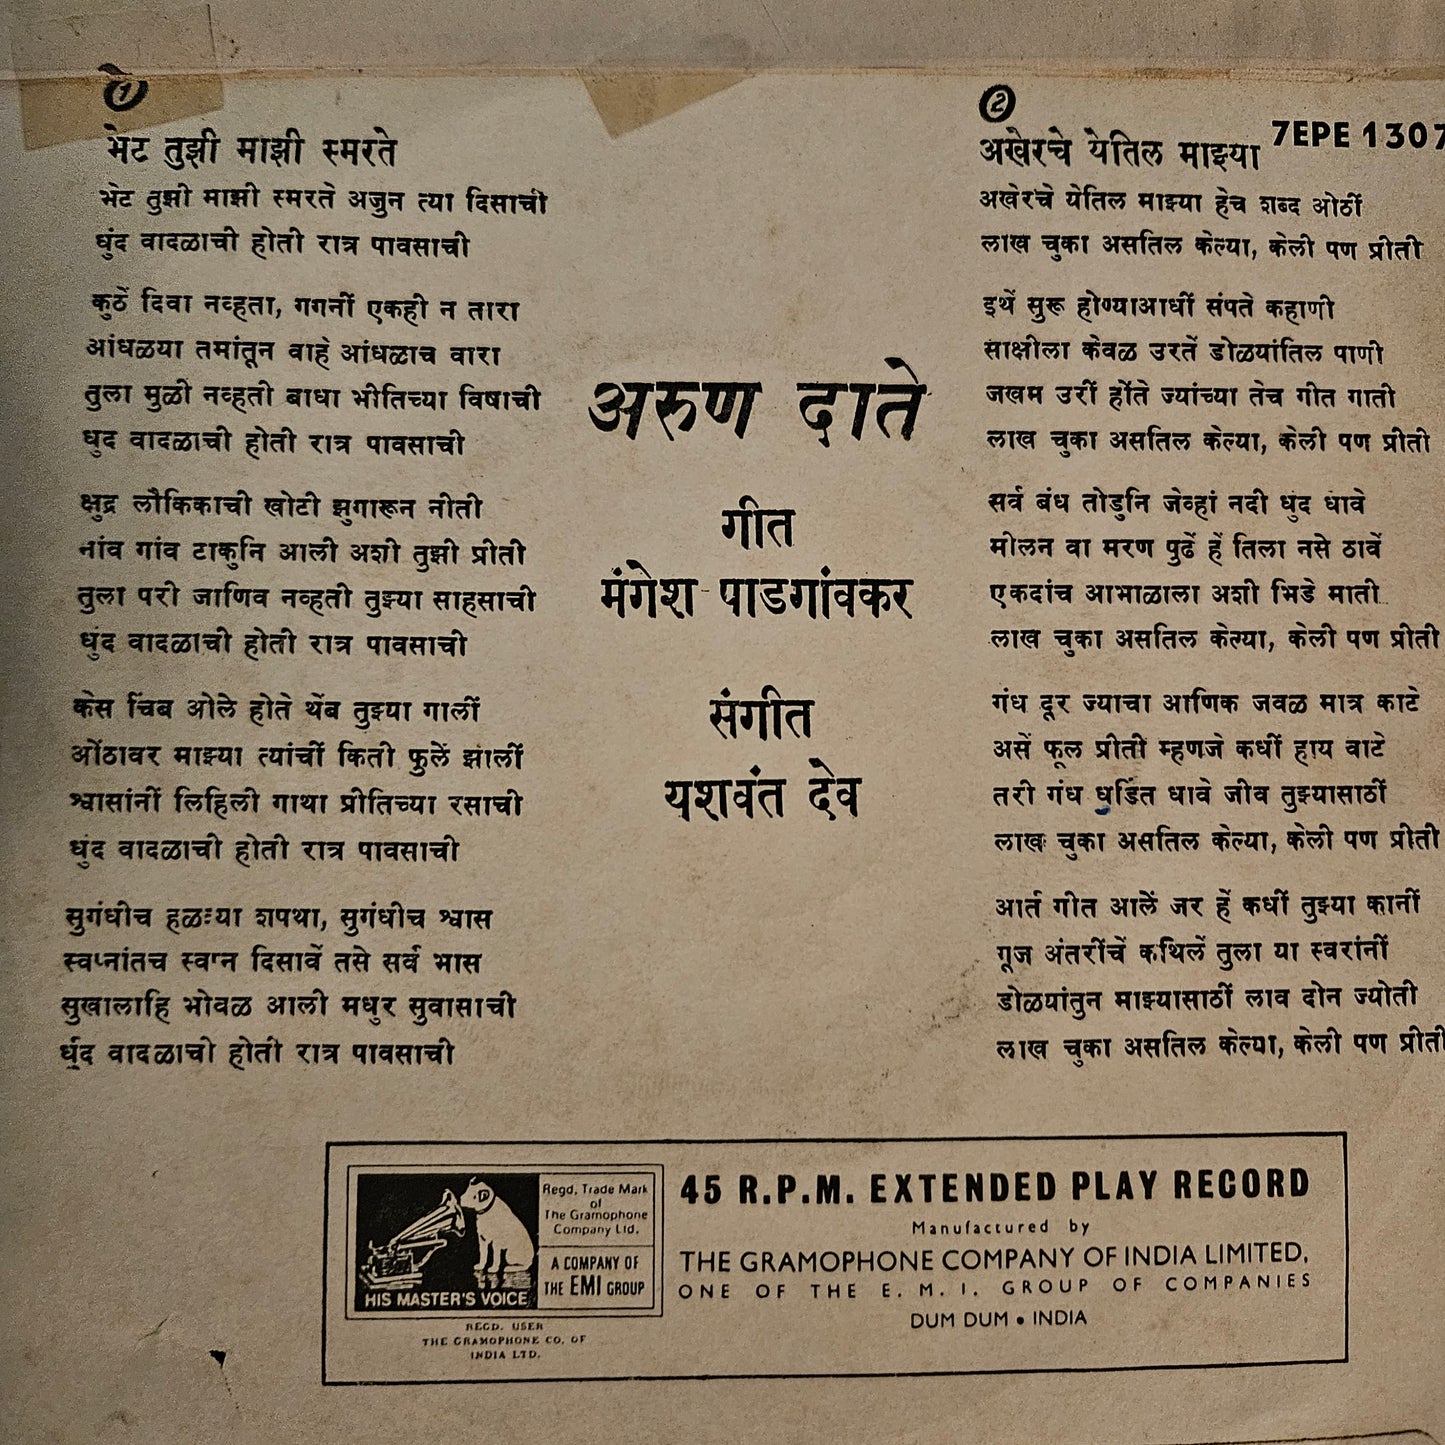 1
भेट तुझी माझी स्मरते
भेट तुझी माझी स्मरते अजुन त्या दिसाची
धुंद वादळाची होती रात्र पावसाची
कुठें दिवा नव्हता, गगनीं एकही न तारा
आंधळया तमांतून वाहे आंधळाच वारा
तुला मुळी नव्हती बाधा भीतिच्या विषाची
धुद वादळाची होती रात्र पावसाची
क्षुद्र लौकिकाची खोटी झुगारून नीती
नांव गांव टाकुनि आली अशी तुझी प्रीती
तुला परी जाणिव नव्हती तुझ्या साहसाची
धुंद वादळाची होती रात्र पावसाची
केस चिंब ओले होते थेंब तुझ्या गालीं
ओंठावर माझ्या त्यांचीं किती फुलें झालीं
श्वासांनीं लिहिली गाथा प्रीतिच्या रसाची
धुंद वादळाची होती रात्र पावसाची
सुगंधीच हळव्या शपथा, सुगंधीच श्वास
स्वप्नांतच स्वप्न दिसावें तसे सर्व भास
सुखालाहि भोवळ आली मधुर सुवासाची
धुंद वादळाची होती रात्र पावसाची
अरुण दाते
गीत
मंगेश पाडगांवकर
संगीत
यशवंत देव
2
7EPE 1307
अखेरचे येतिल माझ्या
अखेरचे येतिल माझ्या हेच शब्द ओठीं
लाख चुका असतिल केल्या, केली पण प्रीती
इथें सुरू होण्याआधीं संपते कहाणी
साक्षीला केवळ उरतें डोळयांतिल पाणी
जखम उरीं होंते ज्यांच्या तेच गीत गाती
लाख चुका असतिल केल्या, केली पण प्रीती
सर्व बंध तोडुनि जेव्हां नदी धुंद धावे
मीलन वा मरण पुढें हें तिला नसे ठावें
एकदांच आभाळाला अशी भिडे माती
लाख चुका असतिल केल्या, केली पण प्रीती
गंध दूर ज्याचा आणिक जवळ मात्र काटे
असें फूल प्रीती म्हणजे कधीं हाय वाटे
तरी गंध धुंडित धावे जीव तुझ्यासाठीं
लाख चुका असतिल केल्या, केली पण प्रीती
आर्त गीत आलें जर हें कधीं तुझ्या कानीं
गूज अंतरींचें कथिलें तुला या स्वरांनीं
डोळयांतुन माझ्यासाठीं लाव दोन ज्योती
लाख चुका असतिल केल्या, केली पण प्रीती
HIS MASTER'S VOICE
Regd. Trade Mark
of
The Gramophone
Company Ltd.
A COMPANY OF
THE EMI GROUP
REGD. USER
THE GRAMOPHONE CO. OF
INDIA LTD.
45 R.P.M. EXTENDED PLAY RECORD
Manufactured by
THE GRAMOPHONE COMPANY OF INDIA LIMITED,
ONE OF THE E. M. I. GROUP OF COMPANIES
DUM DUM • INDIA